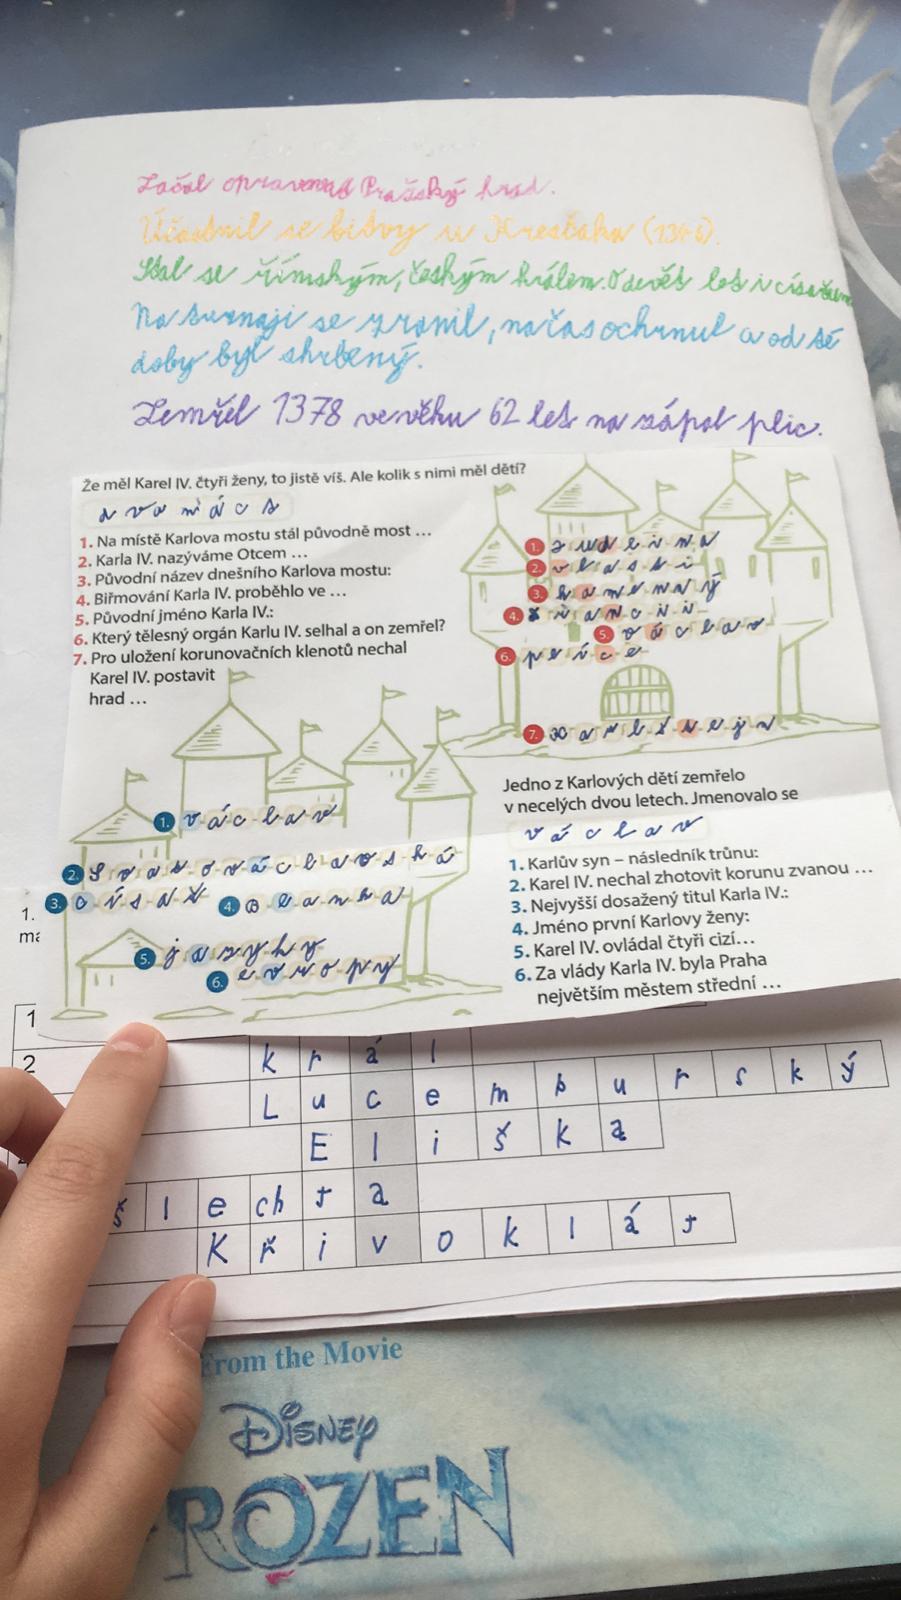 Začal opravovat Pražský hrad.
Účastnil se bitvy u Kresčaku (1346).
Stal se římským, českým králem. O devět let i císařem
Na turnaji se zranil, načas ochrnul a od té
doby byl shrbený.
Zemřel 1378 ve věku 62 let na zápal plic.
Že měl Karel IV. čtyři ženy, to jistě víš. Ale kolik s nimi měl dětí?
dvanáct
1. Na místě Karlova mostu stál původně most ...
2. Karla IV. nazýváme Otcem ...
3. Původní název dnešního Karlova mostu:
4. Biřmování Karla IV. proběhlo ve ...
5. Původní jméno Karla IV.:
6. Který tělesný orgán Karlu IV. selhal a on zemřel?
7. Pro uložení korunovačních klenotů nechal
Karel IV. postavit
hrad ...
1. Juditina
2. vlasti
3. kamenný
4. Francii
5. václav
6. plíce
7. Karlštejn
1. václav
2. Svatováclavská
3. císař
4. Blanka
5. jazyky
6. evropy
Jedno z Karlových dětí zemřelo
v necelých dvou letech. Jmenovalo se
václav
1. Karlův syn – následník trůnu:
2. Karel IV. nechal zhotovit korunu zvanou ...
3. Nejvyšší dosažený titul Karla IV.:
4. Jméno první Karlovy ženy:
5. Karel IV. ovládal čtyři cizí...
6. Za vlády Karla IV. byla Praha
největším městem střední ...
1.
1
2
král
Lucemburský
Eliška
šlechta
Křivoklát
From the Movie
Disney
FROZEN